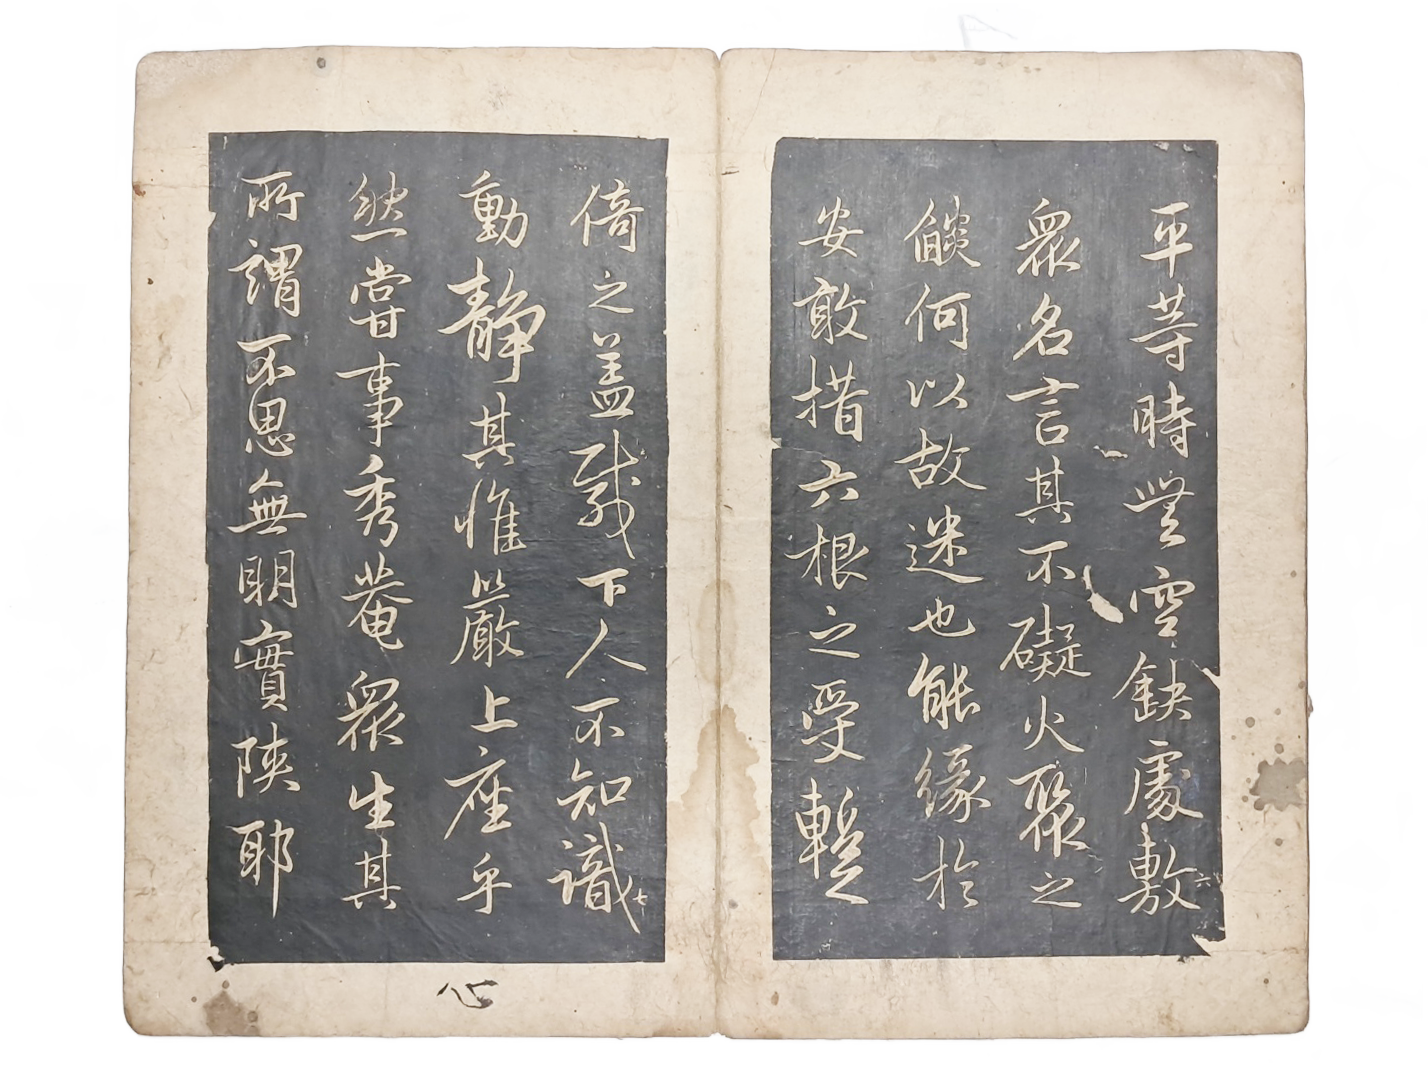 平等時無空缺處敷
六
眾名言其不礙火聚之
燄何以故迷也能緣於
安敢措六根之受蹔
倚之蓋下人不知識
七
動靜其惟嚴上座乎
然當事秀菴眾生其
所謂不思無明實陝耶
心